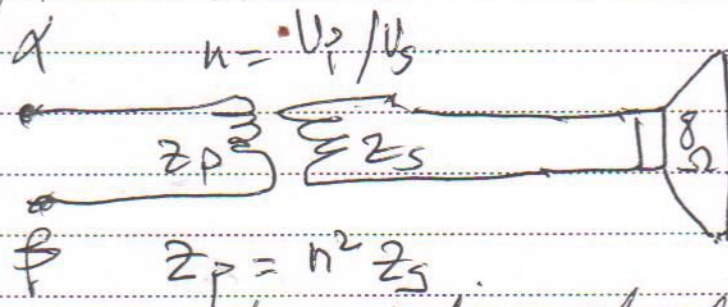 α n = Up/Us
Zp Zs 8 Ω
β Zp = n² Zs